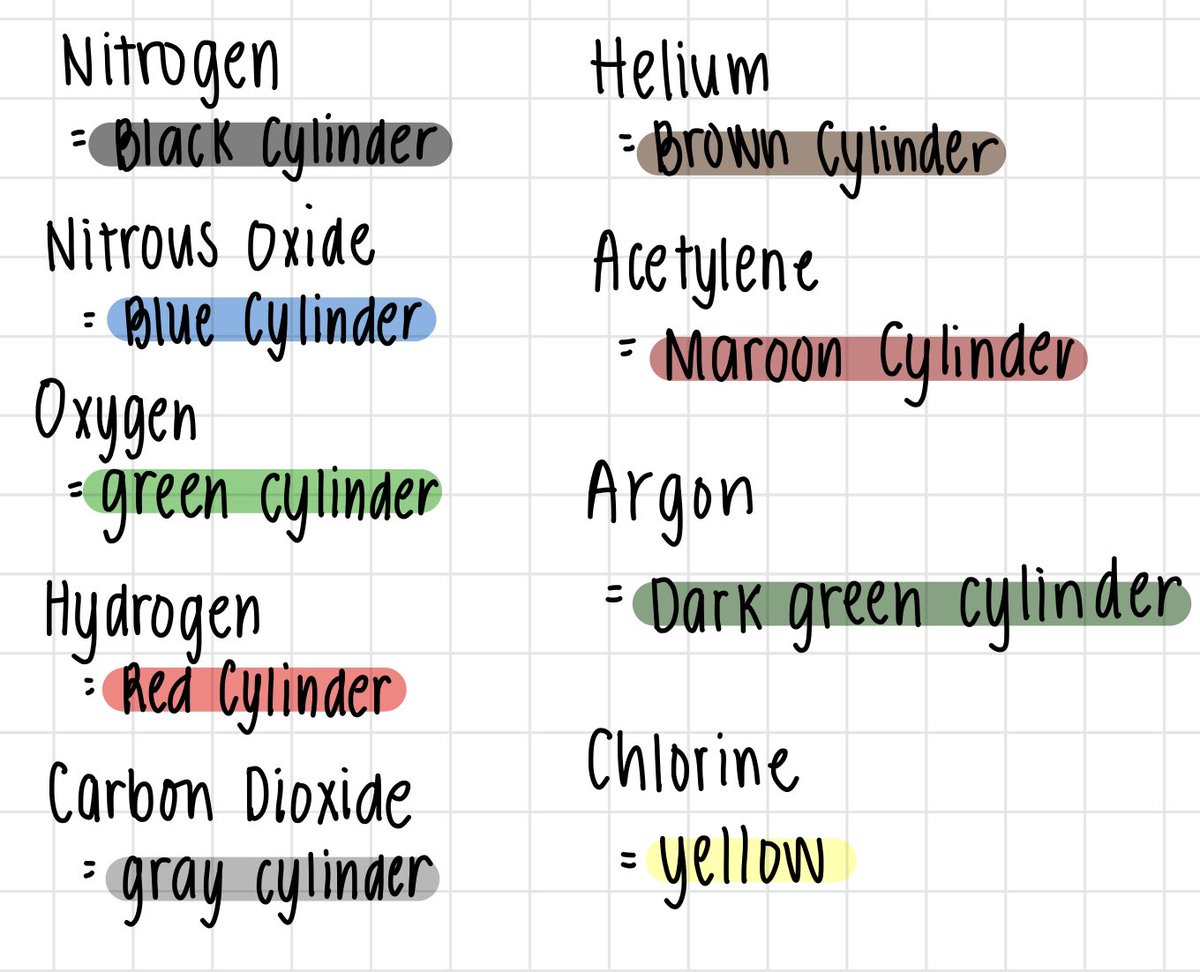 Nitrogen
= Black Cylinder
Nitrous Oxide
= Blue Cylinder
Oxygen
= green cylinder
Hydrogen
= Red Cylinder
Carbon Dioxide
= gray cylinder
Helium
= Brown Cylinder
Acetylene
= Maroon Cylinder
Argon
= Dark green cylinder
Chlorine
= yellow